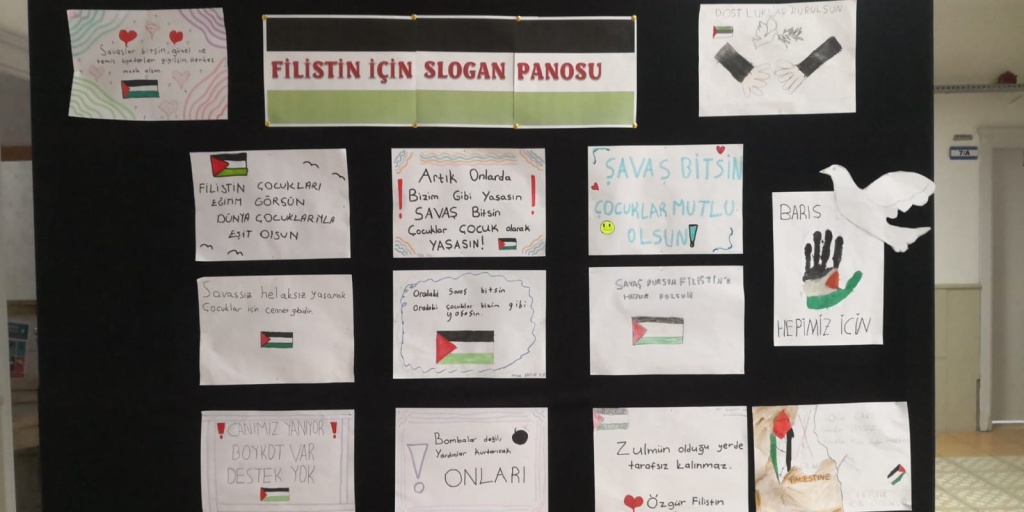 Savaşlar bitsin, güzel ve
temiz kıyafetler giyilsin, herkes
mutlu olsun
FİLİSTİN İÇİN SLOGAN PANOSU
DOSTLUKLAR KURULSUN
FİLİSTİN ÇOCUKLARI
EĞİTİM GÖRSÜN
DÜNYA ÇOCUKLARIYLA
EŞİT OLSUN
Artık Onlarda
Bizim Gibi Yaşasın
SAVAŞ Bitsin
Çocuklar ÇOCUK olarak
YAŞASIN!
ŞAVAŞ BİTSİN
ÇOCUKLAR MUTLU
OLSUN!
BARIŞ
HEPİMİZ İÇİN
Savaşsız helaksız yaşamak
Çocuklar için cennet gibidir.
Oradaki savaş bitsin
Oradaki çocuklar bizim gibi
yaşasın.
SAVAŞ DURSUN FİLİSTİN'E
HUZUR DOLSUN
!CANIMIZ YANIYOR!
BOYKOT VAR
DESTEK YOK
Bombalar değil,
Yardımlar kurtaracak
ONLARI
Zulmün olduğu yerde
tarafsız kalınmaz.
Özgür Filistin
PALESTINE
7/A